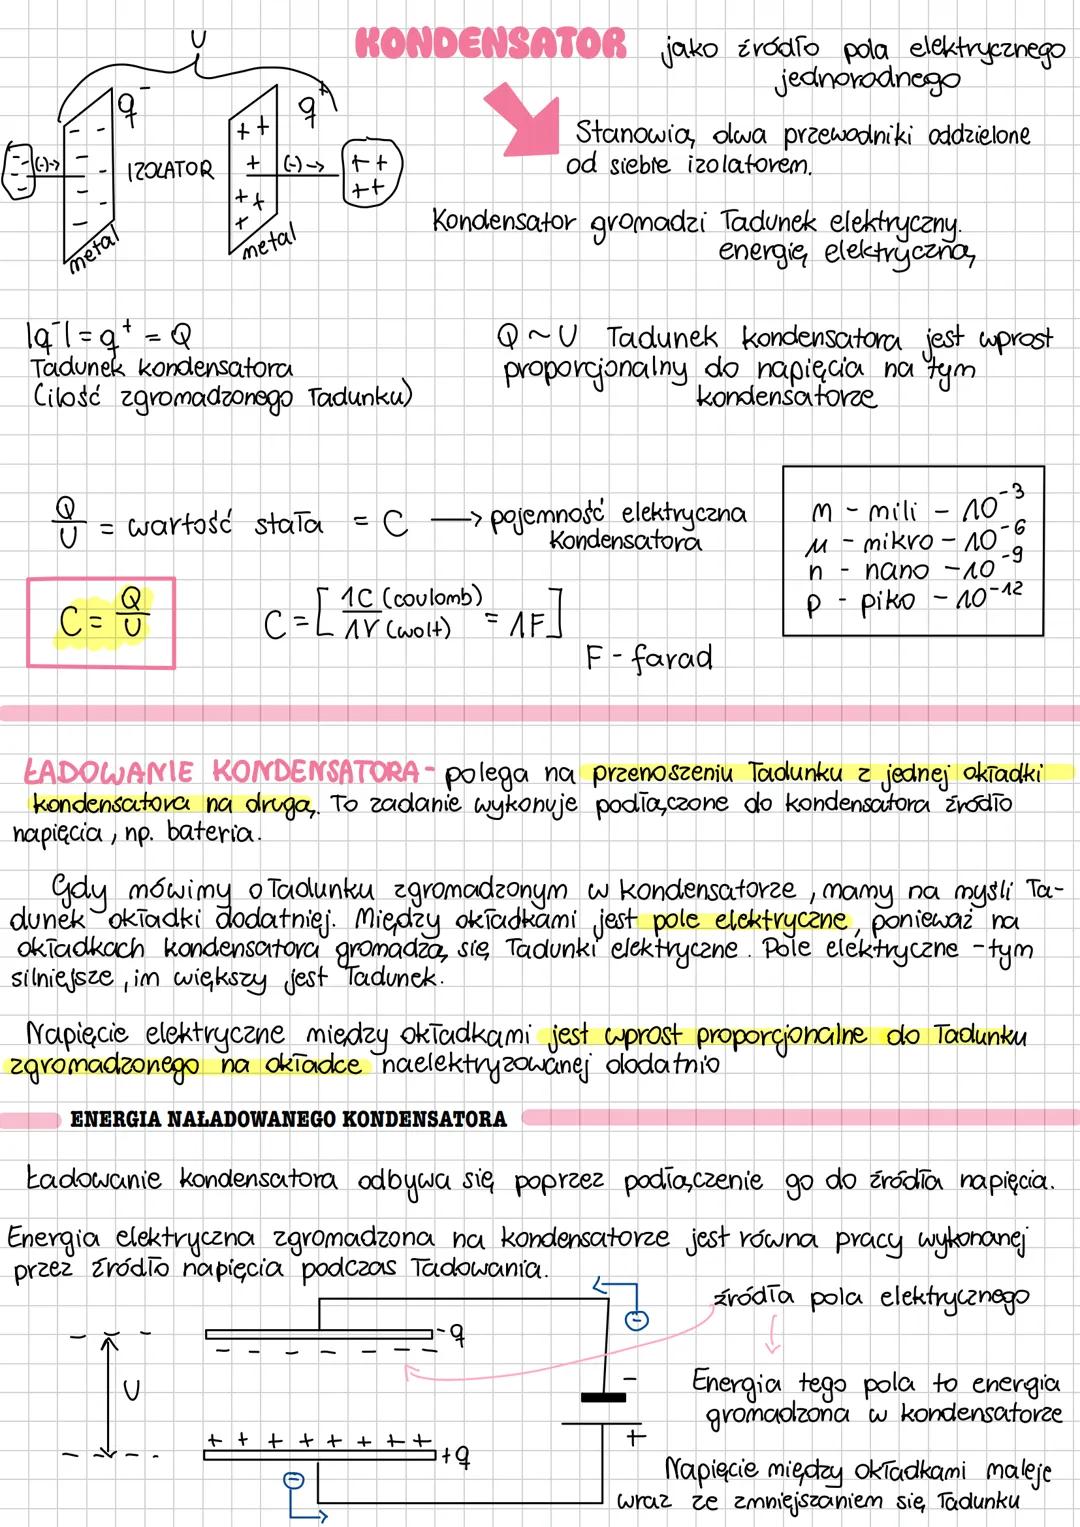 KONDENSATOR jako źródło pola elektrycznego
jednorodnego
U
q⁻
q⁺
(-)→ IZOLATOR (-)→
metal
metal
Stanowią dwa przewodniki oddzielone
od siebie izolatorem.
Kondensator gromadzi ładunek elektryczny.
energię elektryczną
|q⁻| = q⁺ = Q
ładunek kondensatora
(ilość zgromadzonego ładunku)
Q ~ U ładunek kondensatora jest wprost
proporcjonalny do napięcia na tym
kondensatorze
Q/U = wartość stała = C → pojemność elektryczna
kondensatora
m - mili - 10⁻³
μ - mikro - 10⁻⁶
n - nano - 10⁻⁹
p - piko - 10⁻¹²
C = Q/U
C = [1C (coulomb) / 1V (wolt) = 1F]
F - farad
ŁADOWANIE KONDENSATORA - polega na przenoszeniu ładunku z jednej okładki
kondensatora na drugą. To zadanie wykonuje podłączone do kondensatora źródło
napięcia, np. bateria.
Gdy mówimy o ładunku zgromadzonym w kondensatorze, mamy na myśli ła-
dunek okładki dodatniej. Między okładkami jest pole elektryczne, ponieważ na
okładkach kondensatora gromadzą się ładunki elektryczne. Pole elektryczne - tym
silniejsze, im większy jest ładunek.
Napięcie elektryczne między okładkami jest wprost proporcjonalne do ładunku
zgromadzonego na okładce naelektryzowanej dodatnio
ENERGIA NAŁADOWANEGO KONDENSATORA
Ładowanie kondensatora odbywa się poprzez podłączenie go do źródła napięcia.
Energia elektryczna zgromadzona na kondensatorze jest równa pracy wykonanej
przez źródło napięcia podczas ładowania.
źródła pola elektrycznego
-q
U
+q
-
+
Energia tego pola to energia
gromadzona w kondensatorze
Napięcie między okładkami maleje
wraz ze zmniejszaniem się ładunku